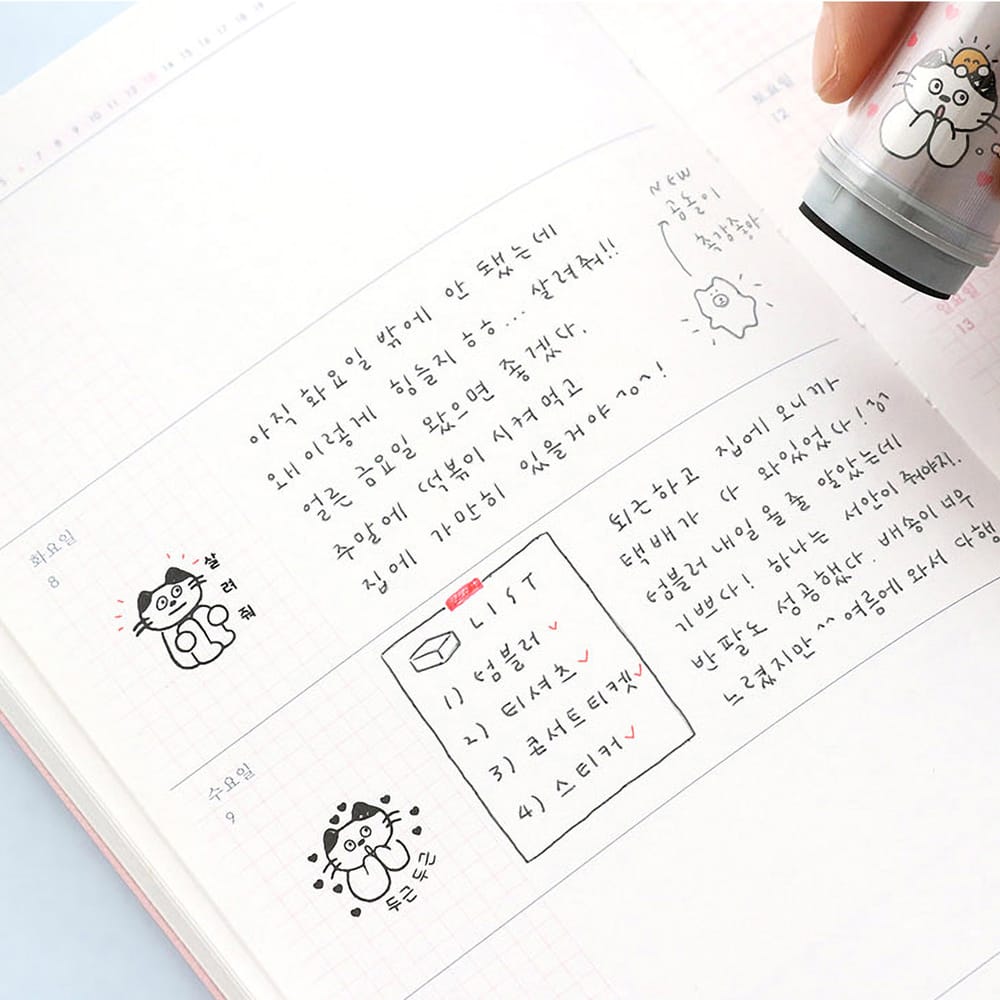 7 8 9 10 11 12 13 14 15 16 17 18 19
토요일
12
일요일
13
NEW
곰돌이
촉감좋아
화요일
8
살려줘
아직 화요일 밖에 안 됐는데
왜이렇게 힘들지 ㅎㅎ... 살려줘!!
얼른 금요일 왔으면 좋겠다.
주말에 떡볶이 시켜먹고
집에 가만히 있을거야 ~!
수요일
9
두근두근
LIST
1) 텀블러 ✓
2) 티셔츠 ✓
3) 콘서트티켓 ✓
4) 스티커 ✓
퇴근하고 집에 오니까
택배가 다 와있었다!
텀블러 내일 올줄 알았는데
기쁘다! 하나는 서안이 줘야지.
반팔도 성공했다. 배송이 너무
느렸지만 ^^ 여름에 와서 다행